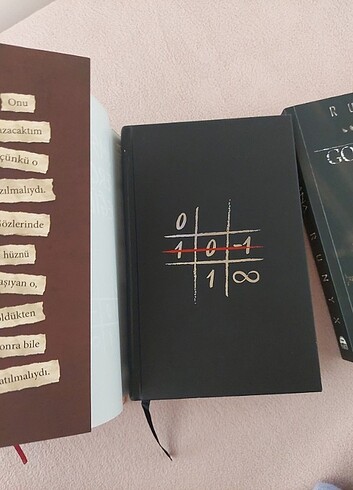 Onu
azacaktım
çünkü o
zılmalıydı.
Gözlerinde
hüznü
aşıyan o,
öldükten
onra bile
atılmalıydı.
0
1 0 -1
1 ∞
RU
GO
RUNYX